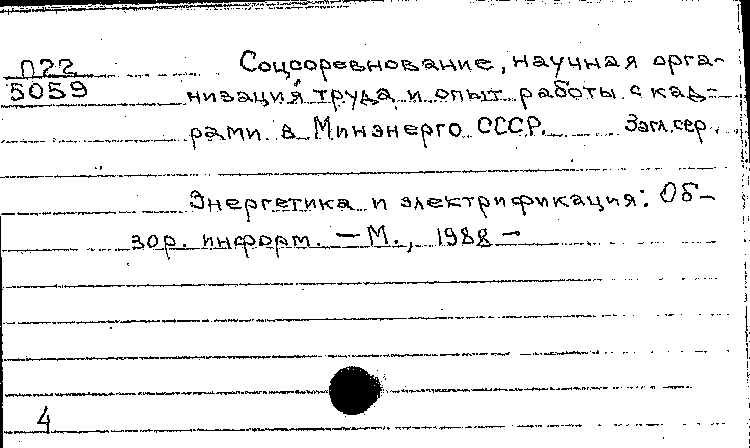 П22
5059
Соцсоревнование, научная орга-
низация труда и опыт работы с кад-
рами в Минэнерго СССР. Загл. сер.
Энергетика и электрификация: Об-
зор. информ. — М., 1988 —
4